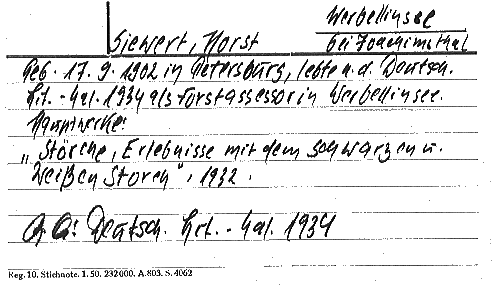 Werbellinsee
Siewert, Horst bei Joachimsthal
Geb. 17. 9. 1902 in Petersburg, lebte n. d. Deutsch.
Lit. - Kal. 1934 als Forstassessor in Werbellinsee.
Hauptwerke:
„Störche, Erlebnisse mit dem schwarzen u.
Weißen Storch", 1932.
Qu: Deutsch. Lit. - Kal. 1934
Reg. 10. Stichnote. I. 50. 232000. A. 803. S. 4062